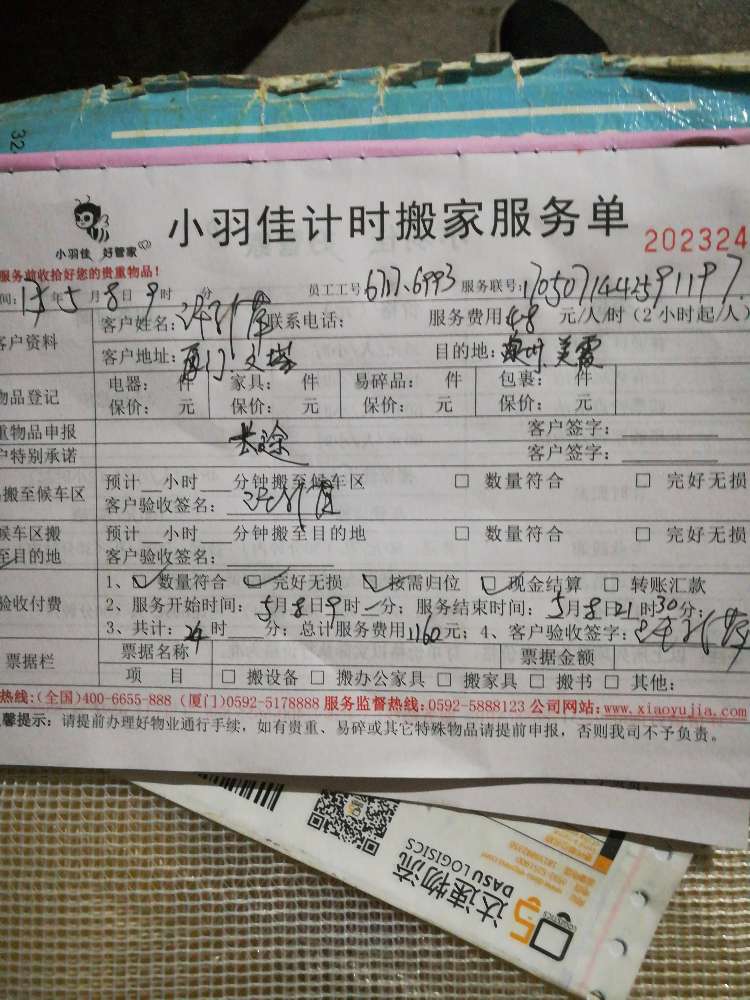 32
小羽佳 好管家
小羽佳计时搬家服务单
202324
服务前收拾好您的贵重物品!
间: 年5月8日9时 分 员工工号6717、6993 服务联号:1705071442591197
客户资料
客户姓名: 联系电话: 服务费用48元/人/时(2小时起/人)
客户地址:厦门 目的地:
物品登记
电器: 件 家具: 件 易碎品: 件 包裹: 件
保价: 元 保价: 元 保价: 元 保价: 元
重物品申报 长途 客户签字:
户特别承诺 客户签字:
搬至候车区
预计 小时 分钟搬至候车区 □ 数量符合 □ 完好无损
客户验收签名:
候车区搬至目的地
预计 小时 分钟搬至目的地 □ 数量符合 □ 完好无损
客户验收签名:
验收付费
1、☑数量符合 ☑完好无损 ☑按需归位 ☑现金结算 □ 转账汇款
2、服务开始时间:5月8日9时 分;服务结束时间:5月8日21时30分;
3、共计:24时 分;总计服务费用1160元;4、客户验收签字:
票据栏
票据名称 票据金额
项 目 □ 搬设备 □ 搬办公家具 □ 搬家具 □ 搬书 □ 其他:
热线:(全国)400-6655-888 (厦门)0592-5178888 服务监督热线:0592-5888123 公司网站:www.xiaoyujia.com
馨提示:请提前办理好物业通行手续,如有贵重、易碎或其它特殊物品请提前申报,否则我司不予负责。
达速物流
DASU LOGISICS